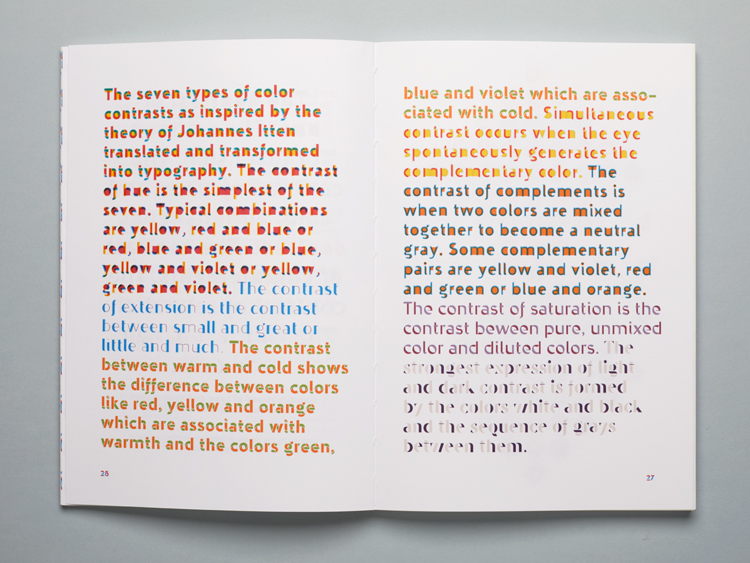 The seven types of color
contrasts as inspired by the
theory of Johannes Itten
translated and transformed
into typography. The contrast
of hue is the simplest of the
seven. Typical combinations
are yellow, red and blue or
red, blue and green or blue,
yellow and violet or yellow,
green and violet. The contrast
of extension is the contrast
between small and great or
little and much. The contrast
between warm and cold shows
the difference between colors
like red, yellow and orange
which are associated with
warmth and the colors green,
26
blue and violet which are asso-
ciated with cold. Simultaneous
contrast occurs when the eye
spontaneously generates the
complementary color. The
contrast of complements is
when two colors are mixed
together to become a neutral
gray. Some complementary
pairs are yellow and violet, red
and green or blue and orange.
The contrast of saturation is the
contrast beween pure, unmixed
color and diluted colors. The
strongest expression of light
and dark contrast is formed
by the colors white and black
and the sequence of grays
between them.
27